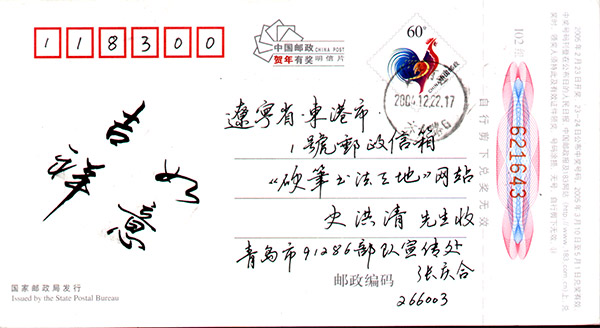 118300
中国邮政 CHINA POST
贺年有奖 明信片
60分
中国邮政
CHINA
2004.12.22.17
辽宁省·東港市
1號郵政信箱
“硬筆书法天地”网站
史洪清 先生收
青岛市91286部队宣传处
张庆合
邮政编码
266003
吉祥如意
国家邮政局发行
Issued by the State Postal Bureau
102组
621643
自行剪下兑奖无效